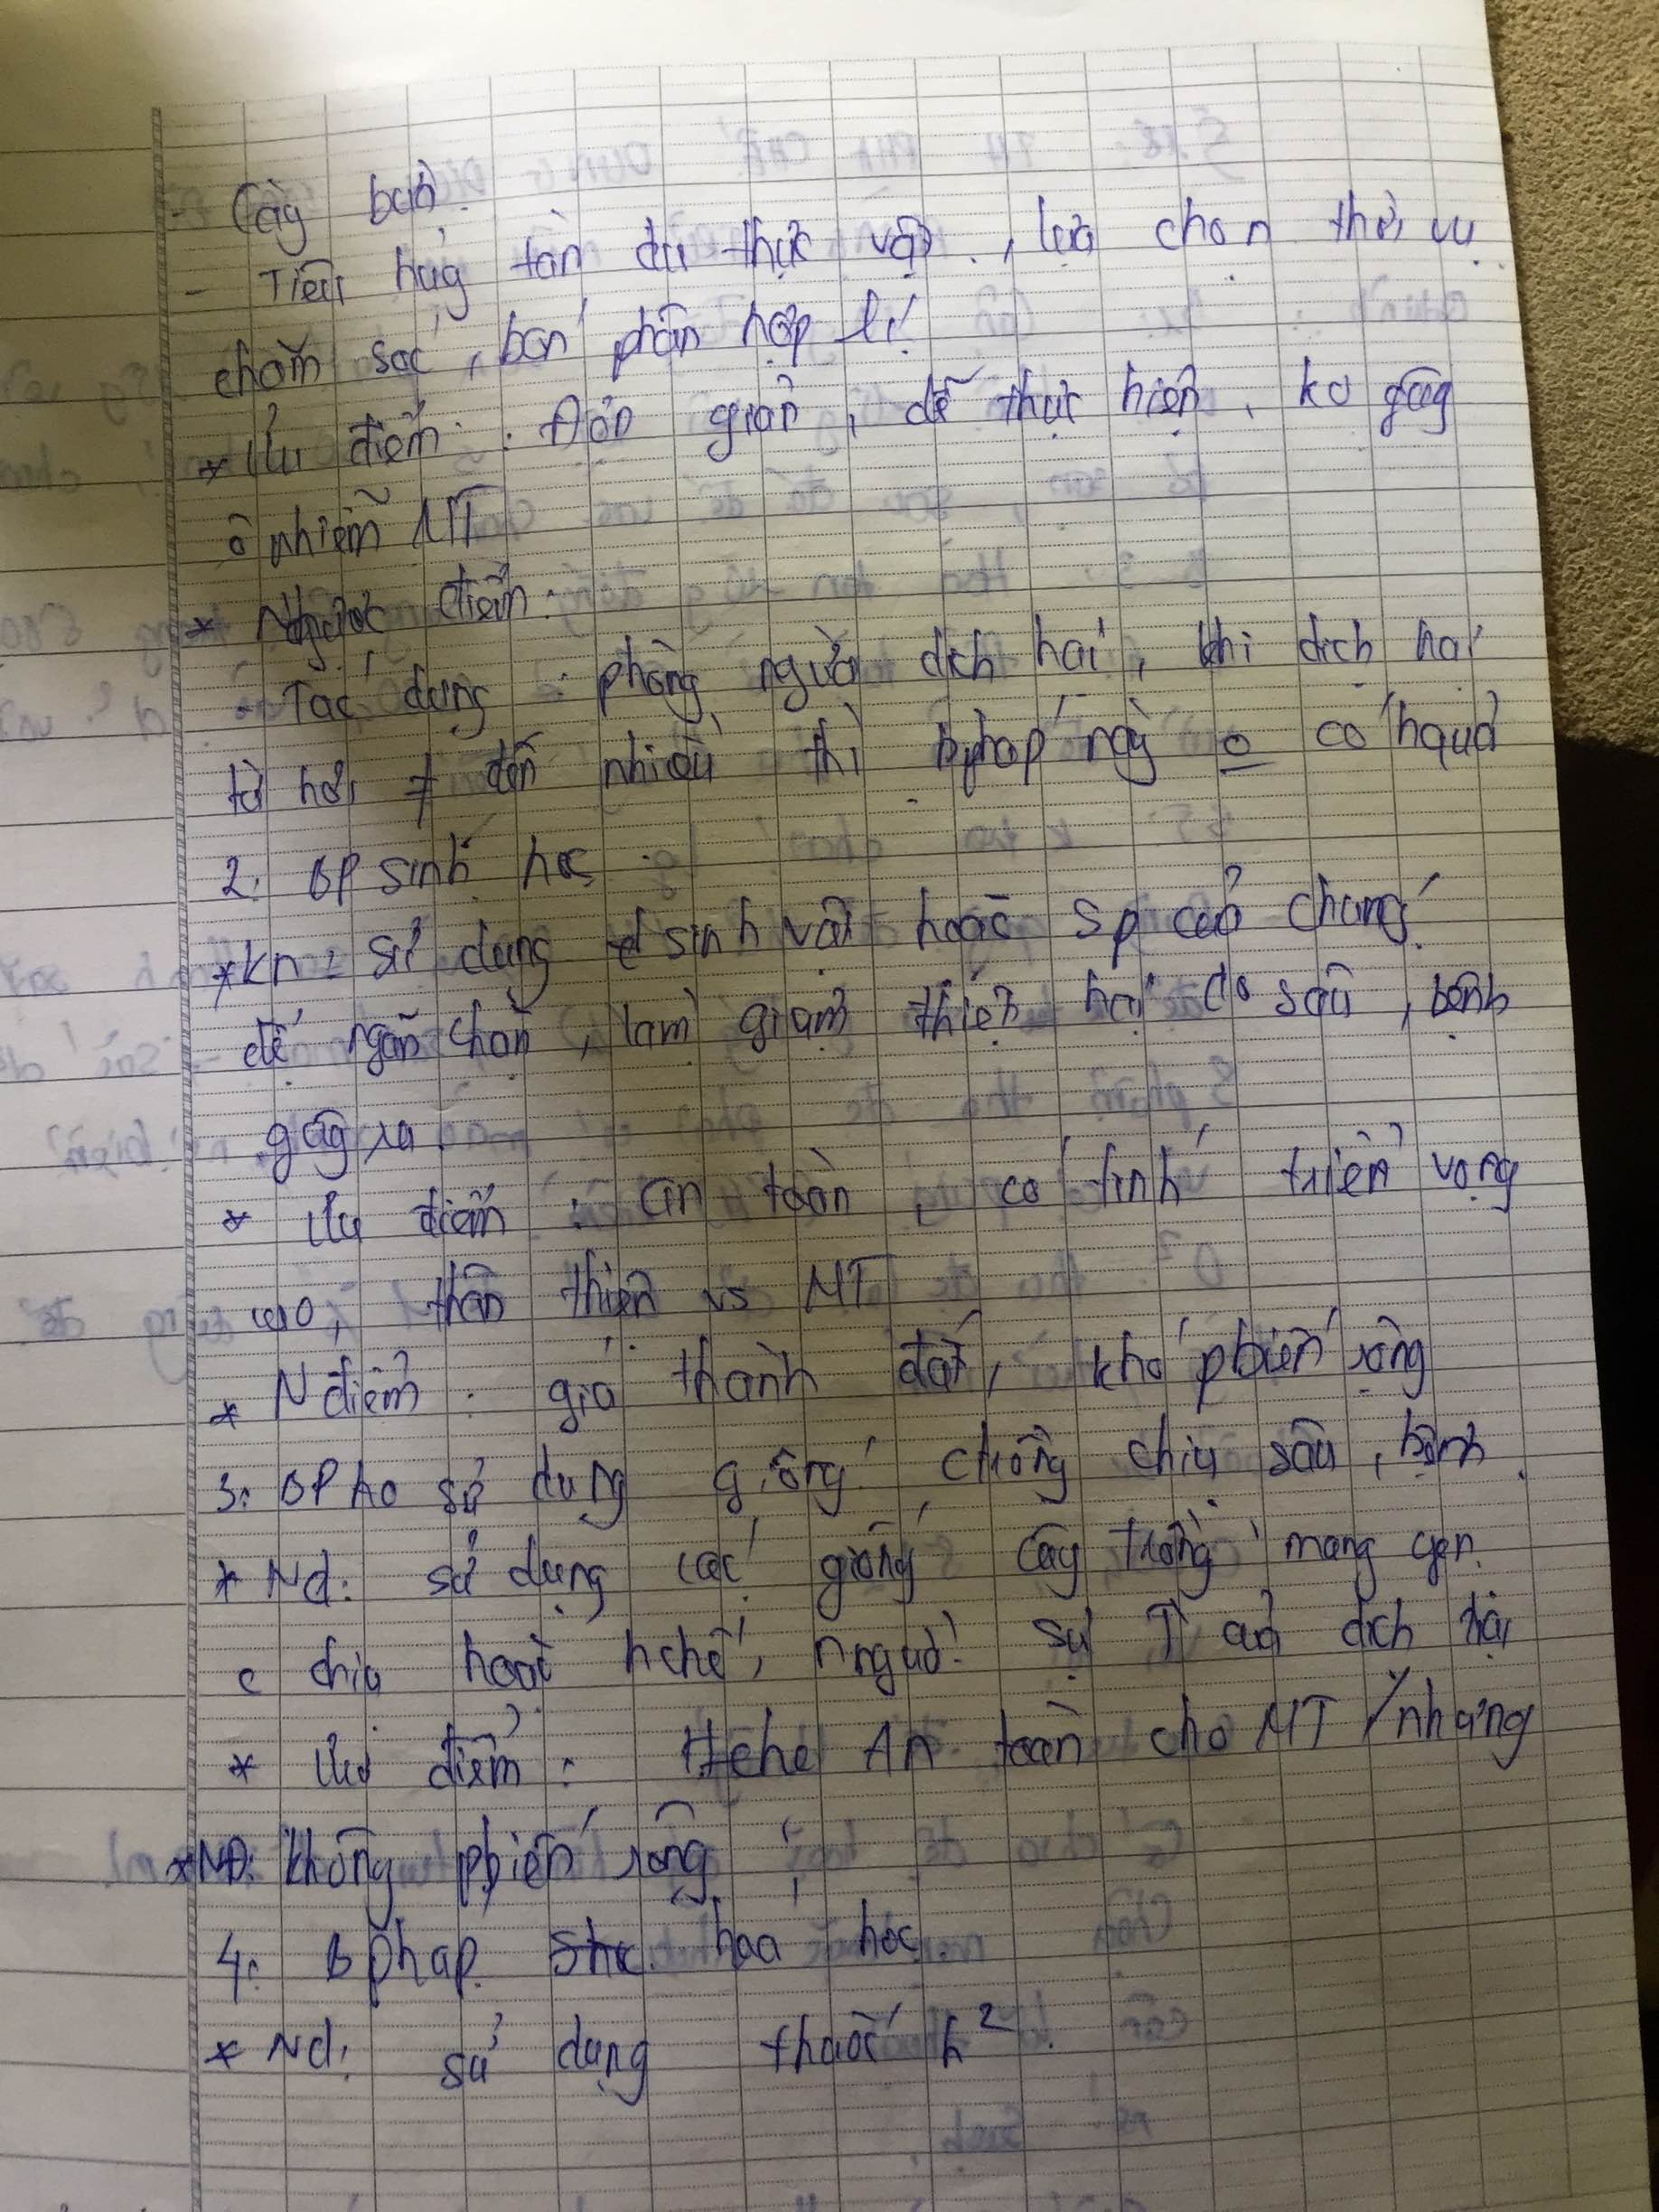 - Cày bừa
- Tiêu hủy tàn dư thực vật, lựa chọn thời vụ
chăm sóc, bón phân hợp lí
* Ưu điểm : Đơn giản, dễ thực hiện, ko gây
ô nhiễm MT
* Nhược điểm :
Tác dụng : phòng ngừa dịch hại, khi dịch hại
đến nhiều thì bpháp này o có hquả
2. BP sinh học
* Kn : sử dụng sinh vật hoặc sp của chúng
để ngăn chặn, làm giảm thiệt hại do sâu, bệnh
gây ra.
* Ưu điểm : an toàn, có tính triển vọng
cao, thân thiện vs MT
* N điểm : giá thành đắt, khó phbiến rộng
3. BP sử dụng giống chống chịu sâu, bệnh.
* Nd: sử dụng các giống cây trồng mang gen
c chịu hoặc hchế, nngừa sự của dịch hại
* Ưu điểm : An toàn cho MT / nhưng
* NĐ: không phbiến rộng
4. Bpháp hóa học.
* Nd: sử dụng thuốc h²